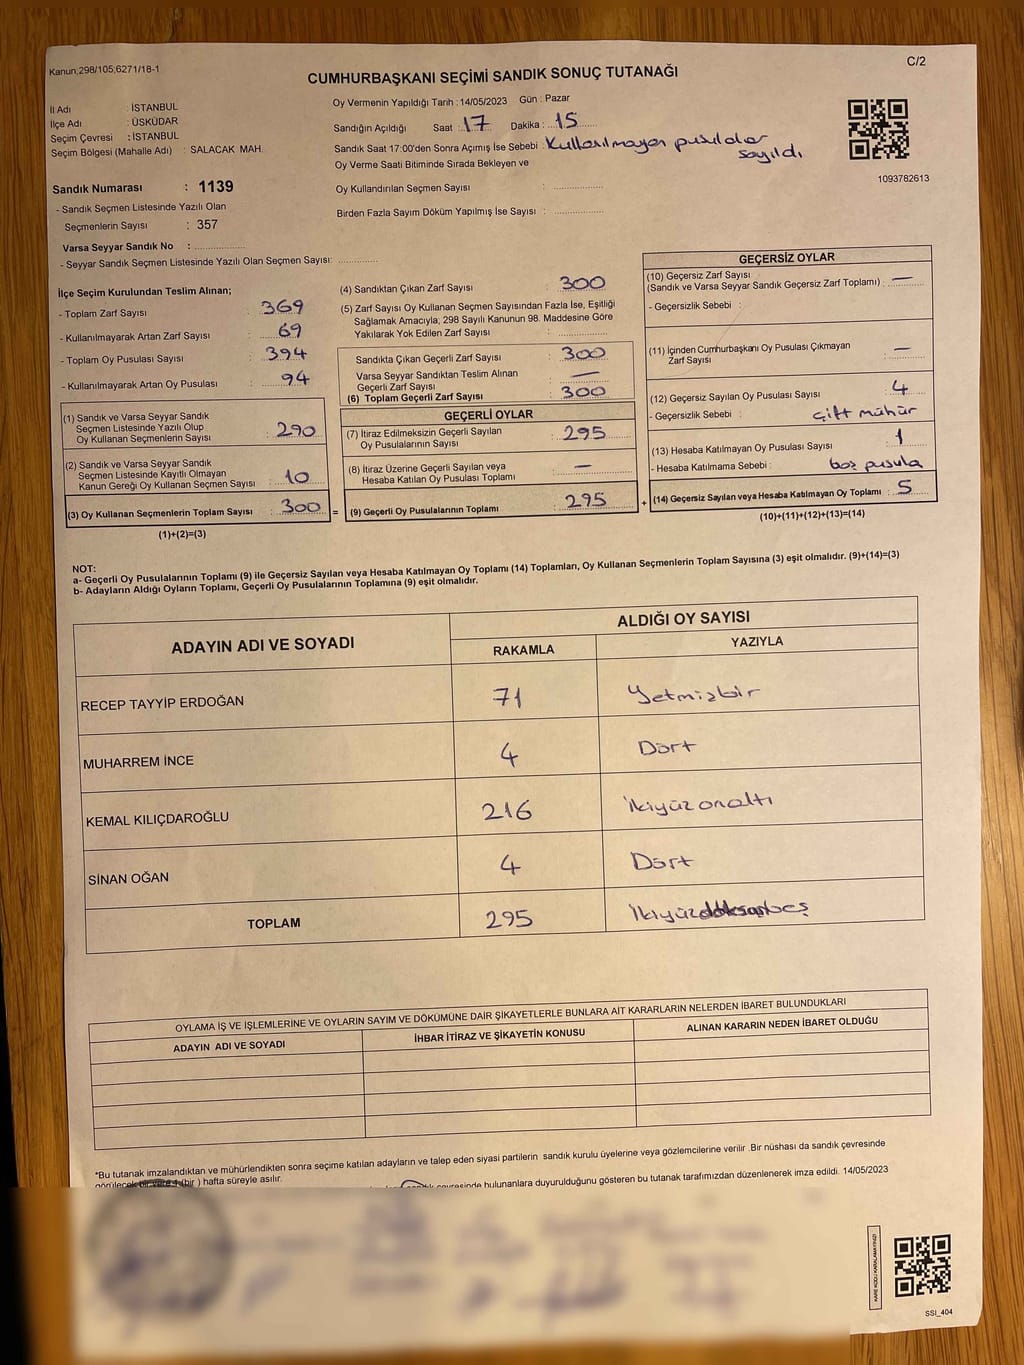 Kanun;298/105;6271/18-1
C/2
CUMHURBAŞKANI SEÇİMİ SANDIK SONUÇ TUTANAĞI
İl Adı : İSTANBUL
İlçe Adı : ÜSKÜDAR
Seçim Çevresi : İSTANBUL
Seçim Bölgesi (Mahalle Adı) : SALACAK MAH.
Oy Vermenin Yapıldığı Tarih : 14/05/2023 Gün : Pazar
Sandığın Açıldığı Saat : 17 Dakika : 15
Sandık Saat 17:00'den Sonra Açımış İse Sebebi : Kullanılmayan pusulalar
sayıldı
Oy Verme Saati Bitiminde Sırada Bekleyen ve
Oy Kullandırılan Seçmen Sayısı :
Birden Fazla Sayım Döküm Yapılmış İse Sayısı :
1093782613
Sandık Numarası : 1139
- Sandık Seçmen Listesinde Yazılı Olan
Seçmenlerin Sayısı : 357
Varsa Seyyar Sandık No :
- Seyyar Sandık Seçmen Listesinde Yazılı Olan Seçmen Sayısı:
İlçe Seçim Kurulundan Teslim Alınan;
- Toplam Zarf Sayısı : 369
- Kullanılmayarak Artan Zarf Sayısı : 69
- Toplam Oy Pusulası Sayısı : 394
- Kullanılmayarak Artan Oy Pusulası : 94
(1) Sandık ve Varsa Seyyar Sandık
Seçmen Listesinde Yazılı Olup
Oy Kullanan Seçmenlerin Sayısı : 290
(2) Sandık ve Varsa Seyyar Sandık
Seçmen Listesinde Kayıtlı Olmayan
Kanun Gereği Oy Kullanan Seçmen Sayısı : 10
(3) Oy Kullanan Seçmenlerin Toplam Sayısı : 300 =
(1)+(2)=(3)
(4) Sandıktan Çıkan Zarf Sayısı : 300
(5) Zarf Sayısı Oy Kullanan Seçmen Sayısından Fazla İse, Eşitliği
Sağlamak Amacıyla, 298 Sayılı Kanunun 98. Maddesine Göre
Yakılarak Yok Edilen Zarf Sayısı :
Sandıkta Çıkan Geçerli Zarf Sayısı : 300
Varsa Seyyar Sandıktan Teslim Alınan
Geçerli Zarf Sayısı : —
(6) Toplam Geçerli Zarf Sayısı : 300
GEÇERLİ OYLAR
(7) İtiraz Edilmeksizin Geçerli Sayılan
Oy Pusulalarının Sayısı : 295
(8) İtiraz Üzerine Geçerli Sayılan veya
Hesaba Katılan Oy Pusulası Toplamı : —
(9) Geçerli Oy Pusulalarının Toplamı : 295 +
GEÇERSİZ OYLAR
(10) Geçersiz Zarf Sayısı
(Sandık ve Varsa Seyyar Sandık Geçersiz Zarf Toplamı) : —
- Geçersizlik Sebebi :
(11) İçinden Cumhurbaşkanı Oy Pusulası Çıkmayan
Zarf Sayısı : —
(12) Geçersiz Sayılan Oy Pusulası Sayısı : 4
- Geçersizlik Sebebi : çift mühür
(13) Hesaba Katılmayan Oy Pusulası Sayısı : 1
- Hesaba Katılmama Sebebi : boş pusula
(14) Geçersiz Sayılan veya Hesaba Katılmayan Oy Toplamı : 5
(10)+(11)+(12)+(13)=(14)
NOT:
a- Geçerli Oy Pusulalarının Toplamı (9) ile Geçersiz Sayılan veya Hesaba Katılmayan Oy Toplamı (14) Toplamları, Oy Kullanan Seçmenlerin Toplam Sayısına (3) eşit olmalıdır. (9)+(14)=(3)
b- Adayların Aldığı Oyların Toplamı, Geçerli Oy Pusulalarının Toplamına (9) eşit olmalıdır.
ADAYIN ADI VE SOYADI
ALDIĞI OY SAYISI
RAKAMLA YAZIYLA
RECEP TAYYİP ERDOĞAN 71 Yetmişbir
MUHARREM İNCE 4 Dört
KEMAL KILIÇDAROĞLU 216 İkiyüzonaltı
SİNAN OĞAN 4 Dört
TOPLAM 295 İkiyüzdoksanbeş
OYLAMA İŞ VE İŞLEMLERİNE VE OYLARIN SAYIM VE DÖKÜMÜNE DAİR ŞİKAYETLERLE BUNLARA AİT KARARLARIN NELERDEN İBARET BULUNDUKLARI
ADAYIN ADI VE SOYADI İHBAR İTİRAZ VE ŞİKAYETİN KONUSU ALINAN KARARIN NEDEN İBARET OLDUĞU
*Bu tutanak imzalandıktan ve mühürlendikten sonra seçime katılan adayların ve talep eden siyasi partilerin sandık kurulu üyelerine veya gözlemcilerine verilir .Bir nüshası da sandık çevresinde
görülecek bir yere 1 (bir ) hafta süreyle asılır.
çevresinde bulunanlara duyurulduğunu gösteren bu tutanak tarafımızdan düzenlenerek imza edildi. 14/05/2023
KARE KODU KARALAMAYINIZ!
SSI_404